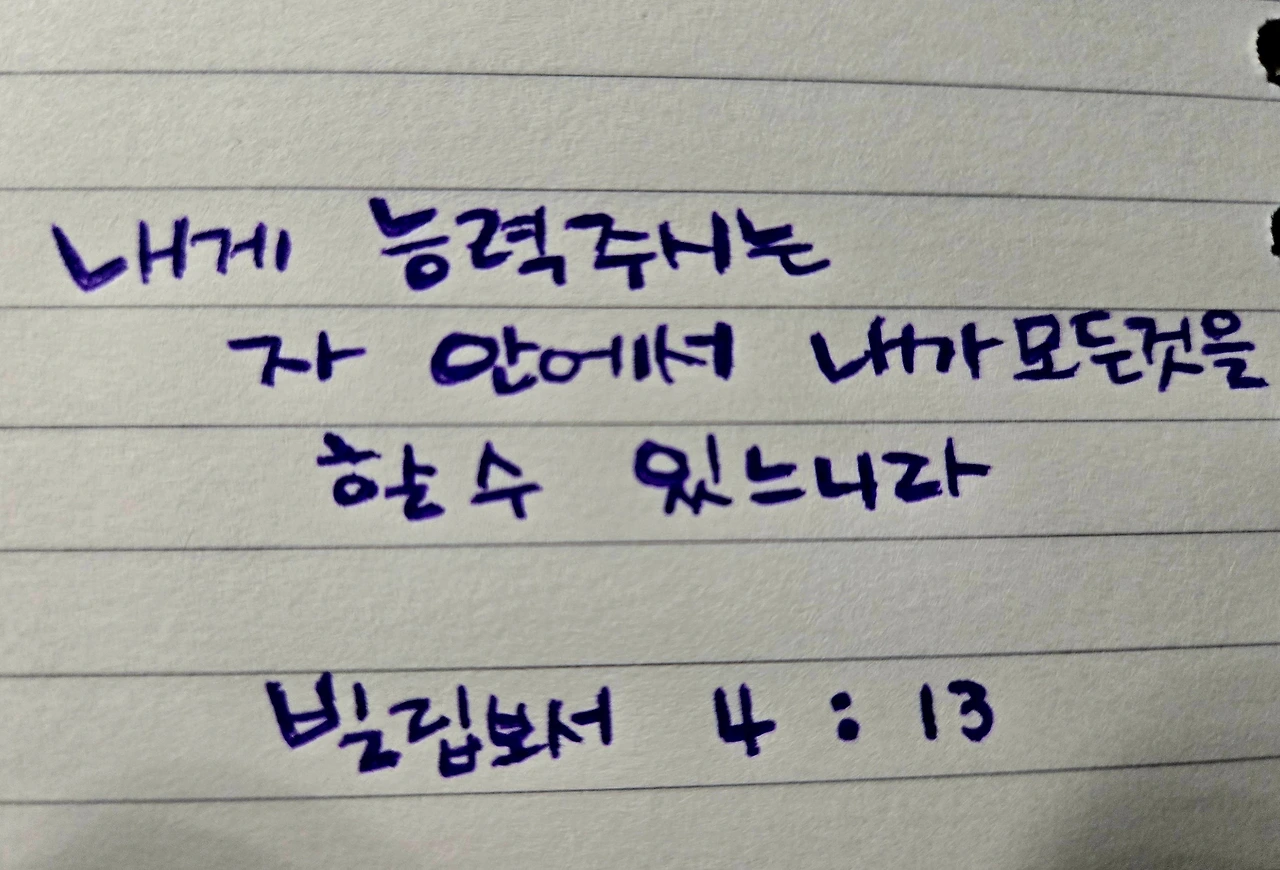 내게 능력주시는
자 안에서 내가모든것을
할수 있느니라
빌립보서 4 : 13